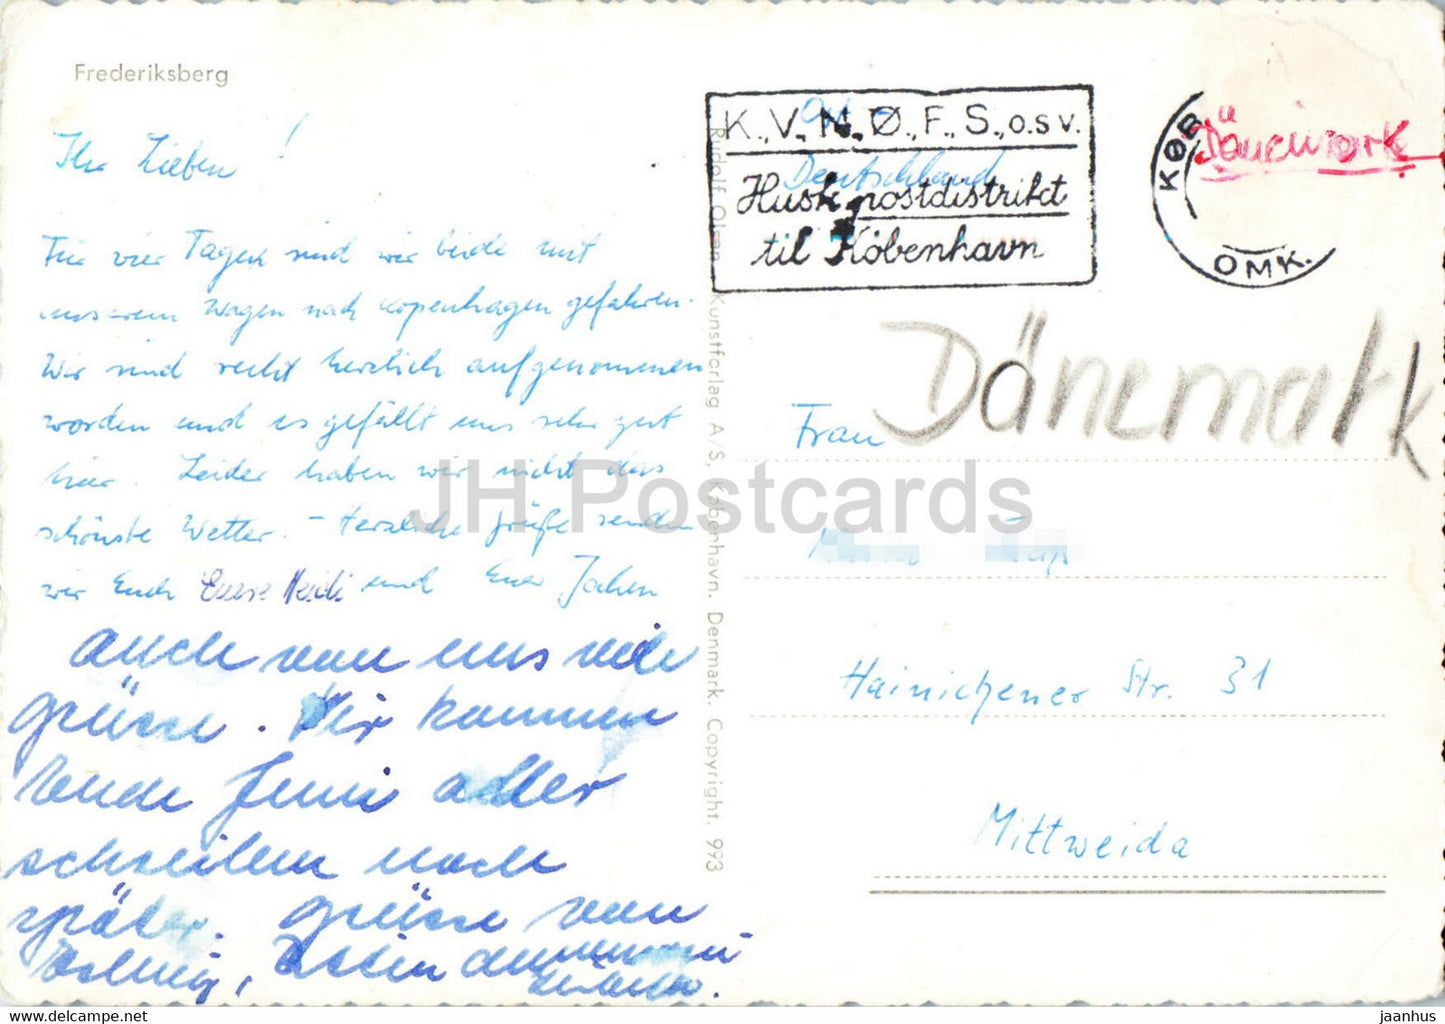 Frederiksberg
Ihr Lieben!
Für vier Tagen sind wir beide mit
unserem Wagen nach Kopenhagen gefahren.
Wir sind recht herzlich aufgenommen
worden und es gefällt uns sehr gut
hier. Leider haben wir nicht das
schönste Wetter. – Herzliche Grüße senden
wir Euch Eure Heidi und Euer Jochen
auch von uns viele
grüsse. Wir kommen
ende Juni oder
schreiben noch
später. grüsse von
Rudolf Olsen Kunstforlag A/S, København. Denmark. Copyright. 993
K., V., N., Ø., F., S., o.s v.
Husk postdistrikt
til København
Deutschland
KØB
OMK.
Dänemark
Dänemark
Frau
Hainichener Str. 31
Mittweida
JH Postcards
jaanhus.ecrater.com